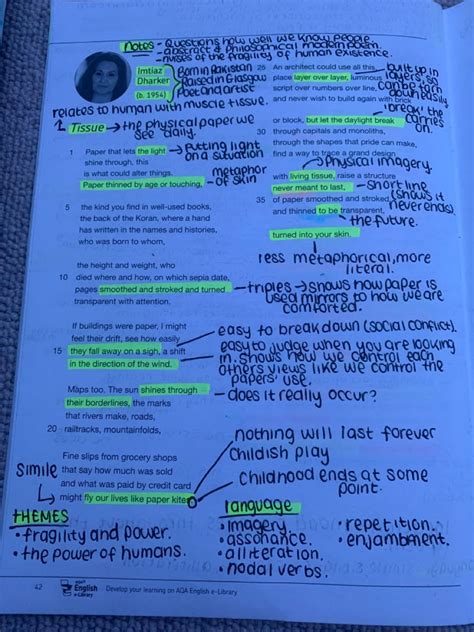 Notes - Questions how well we know people.
- abstract & philosophical modern poem
- muses of the fragility of human existence.
Imtiaz
Dharker
(b. 1954)
Born in Pakistan
Raised in Glasgow
Poet and artist
relates to human with muscle tissue.
2. Tissue → the physical paper we
see daily.
1 Paper that lets the light
shine through, this
is what could alter things.
Paper thinned by age or touching,
→ Putting light
on a situation
metaphor
of skin
5 the kind you find in well-used books,
the back of the Koran, where a hand
has written in the names and histories,
who was born to whom,
the height and weight, who
10 died where and how, on which sepia date,
pages smoothed and stroked and turned
transparent with attention.
→ triples → shows how paper is
used mirrors to how we are
comforted.
If buildings were paper, I might
feel their drift, see how easily
15 they fall away on a sigh, a shift
in the direction of the wind.
easy to break down (social conflict).
easy to judge when you are looking
in. shows how we control each
others views like we control the
papers' use.
Maps too. The sun shines through
their borderlines, the marks
that rivers make, roads,
20 railtracks, mountainfolds,
- does it really occur?
Fine slips from grocery shops
that say how much was sold
and what was paid by credit card
might fly our lives like paper kites.
Simile
nothing will last forever
childish play
Childhood ends at some
point.
25 An architect could use all this,
place layer over layer, luminous
script over numbers over line,
and never wish to build again with brick
built up in
layers, so
can be torn
down easily
30 or block, but let the daylight break
through capitals and monoliths,
through the shapes that pride can make,
find a way to trace a grand design
break the
carries
on.
→ Physical imagery.
with living tissue, raise a structure
never meant to last,
35 of paper smoothed and stroked
and thinned to be transparent,
- short line
(shows it
never ends).
the future.
turned into your skin.
less metaphorical, more
literal.
THEMES
• fragility and power.
• the power of humans.
language
• imagery
• assonance.
• alliteration.
• modal verbs.
• repetition.
• enjambment.
42
English
e-Library
Develop your learning on AQA English e-Library